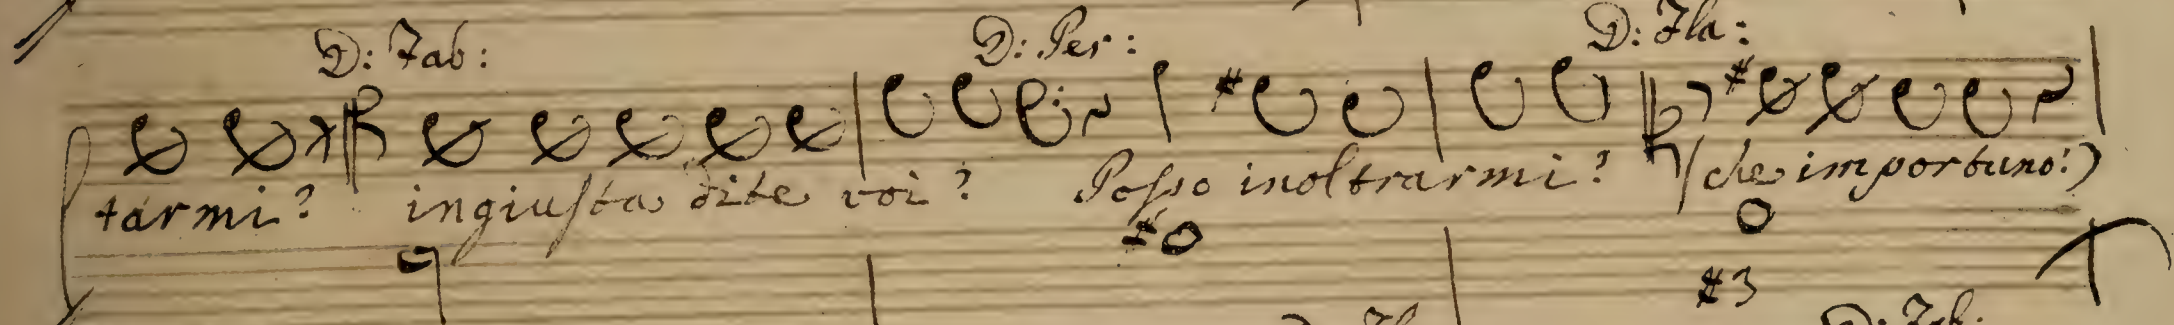 D: Fab: D: Per: D: Fla:
tarmi? ingiusta dite voi? Posso inoltrarmi? (che importuno!)
#3
D: Fab: